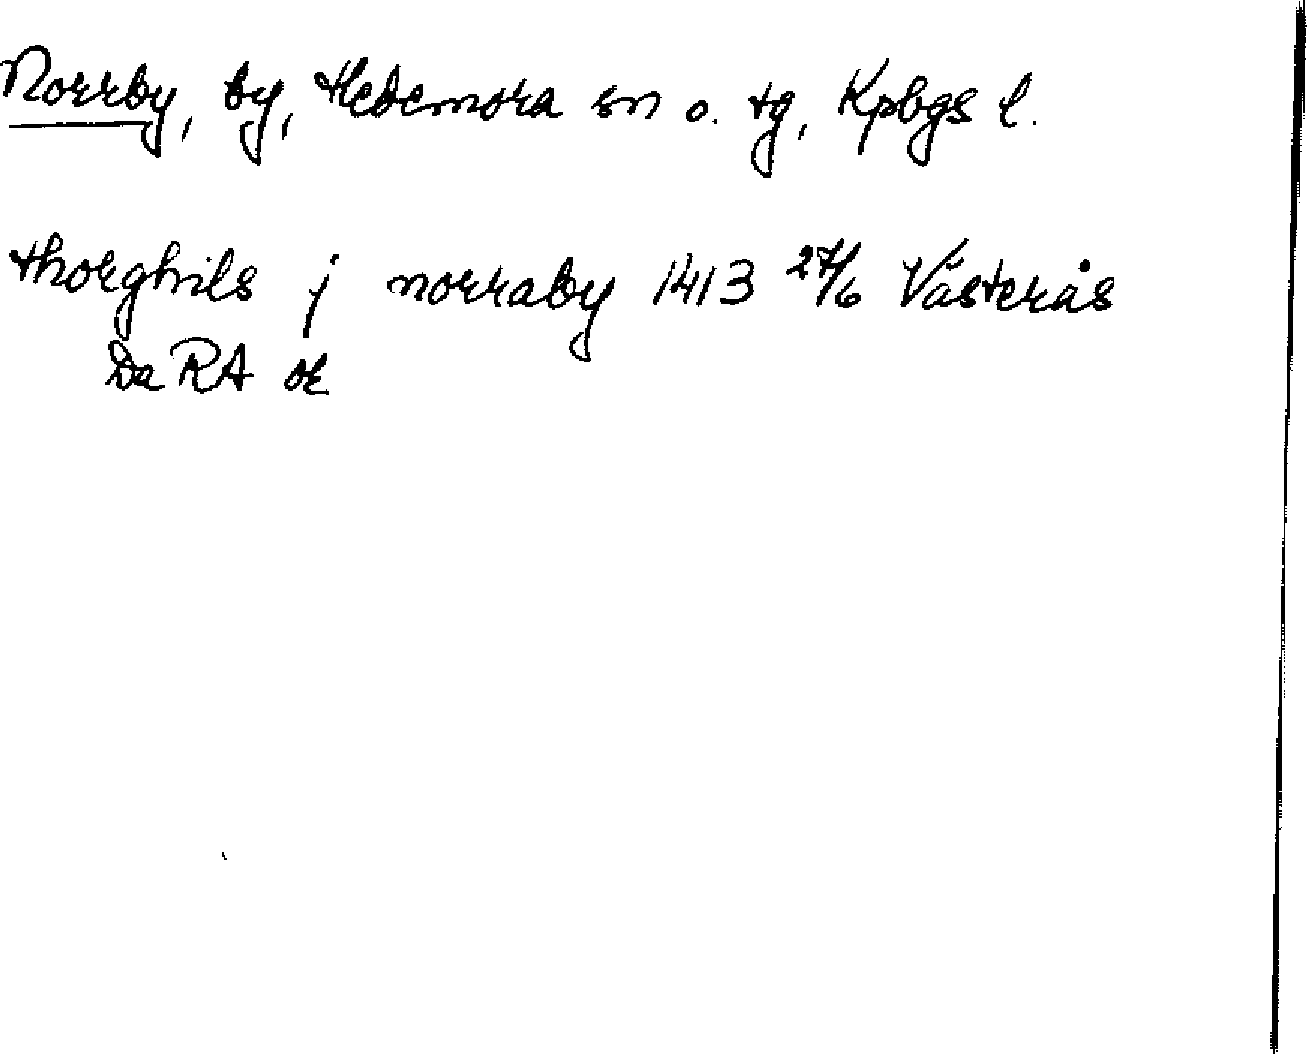 Norrby, by, Hedemora sn o. tg, Kpbgs l.
thorghils j norraby 1413 27/6 Västerås
Da RA or